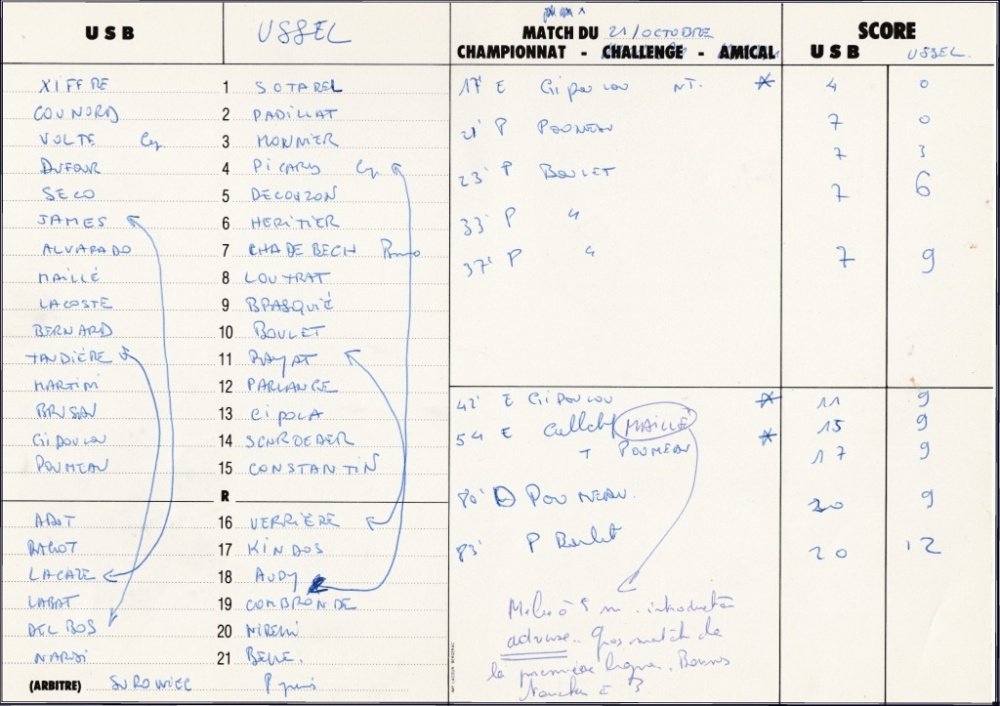 USB USSEL
MATCH DU 21/OCTOBRE
CHAMPIONNAT - CHALLENGE - AMICAL
SCORE
USB USSEL.
XIFFRE 1 SOTAREL
COUNORD 2 PADILLAT
VOLTE Cap 3 MONMIER
DUFOUR 4 PICARD Cap
SECO 5 DECOUZON
JAMES 6 HERITIER
ALVARADO 7 CHADEBECH Bruno
MAILLÉ 8 LOUTRAT
LACOSTE 9 BRASQUIÉ
BERNARD 10 BOULET
TANDIÈRE 11 RAYAT
MARTINI 12 PARLANGE
BRISAN 13 CIPOLA
GIPOULOU 14 SCHROEDER
POUMEAU 15 CONSTANTIN
R
ADOT 16 VERRIÈRE
RAGOT 17 KINDOS
LACAZE 18 AUDY
LABAT 19 COMBRONDE
DELBOS 20 MIRELLI
NARDI 21 BELLE.
(ARBITRE) SUROWIEC
17' E Gipoulou NT. * 4 0
21' P POUMEAU 7 0
23' P BOULET 7 3
33' P " 7 6
37' P " 7 9
42' E GIPOULOU * 11 9
54 E Collectif MAILLÉ * 15 9
T POUMEAU 17 9
80' D POUMEAU. 20 9
83' P Boulet 20 12
Mêlée à 5 m. introduction
adverse. Gros match de
la première ligne. Bonnes